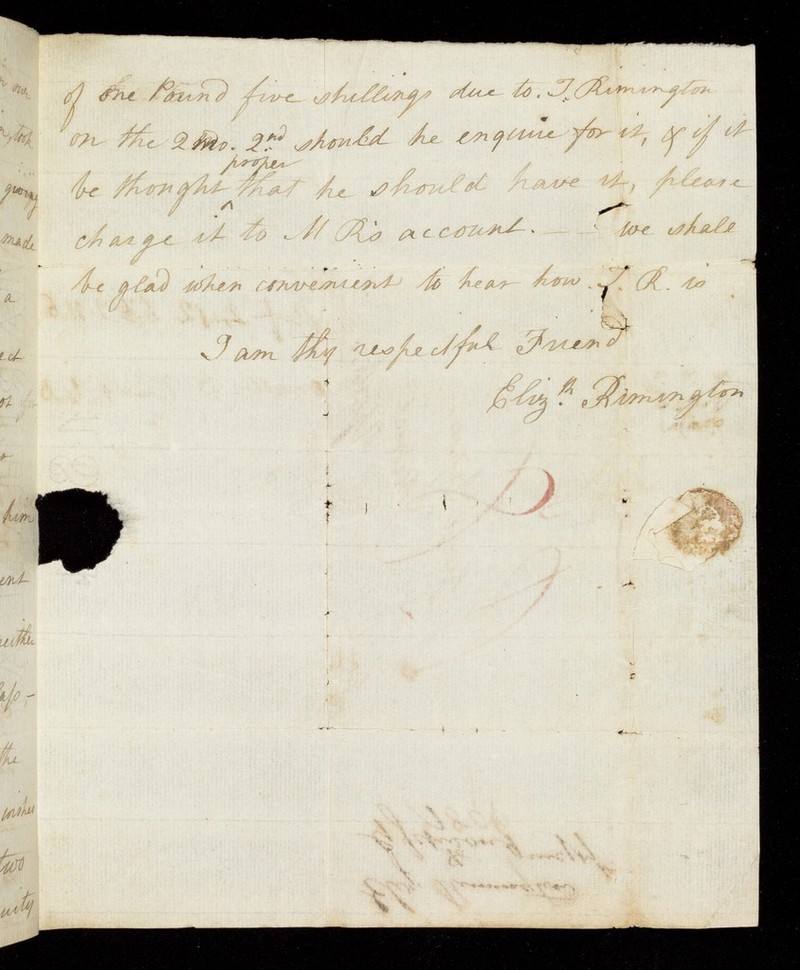 of one Pound five shillings due to. T. Rimington
on the 2 mo. 2nd should he enquire for it, & if it
proper
be thought ^ that he should have it, please
charge it to M R's account. — — we shall
be glad when convenient to hear how T. R. is
I am thy respectful Friend
Elizth. Rimington
took
giving
made
a
him
ent
neither
the
wishes
two
uity